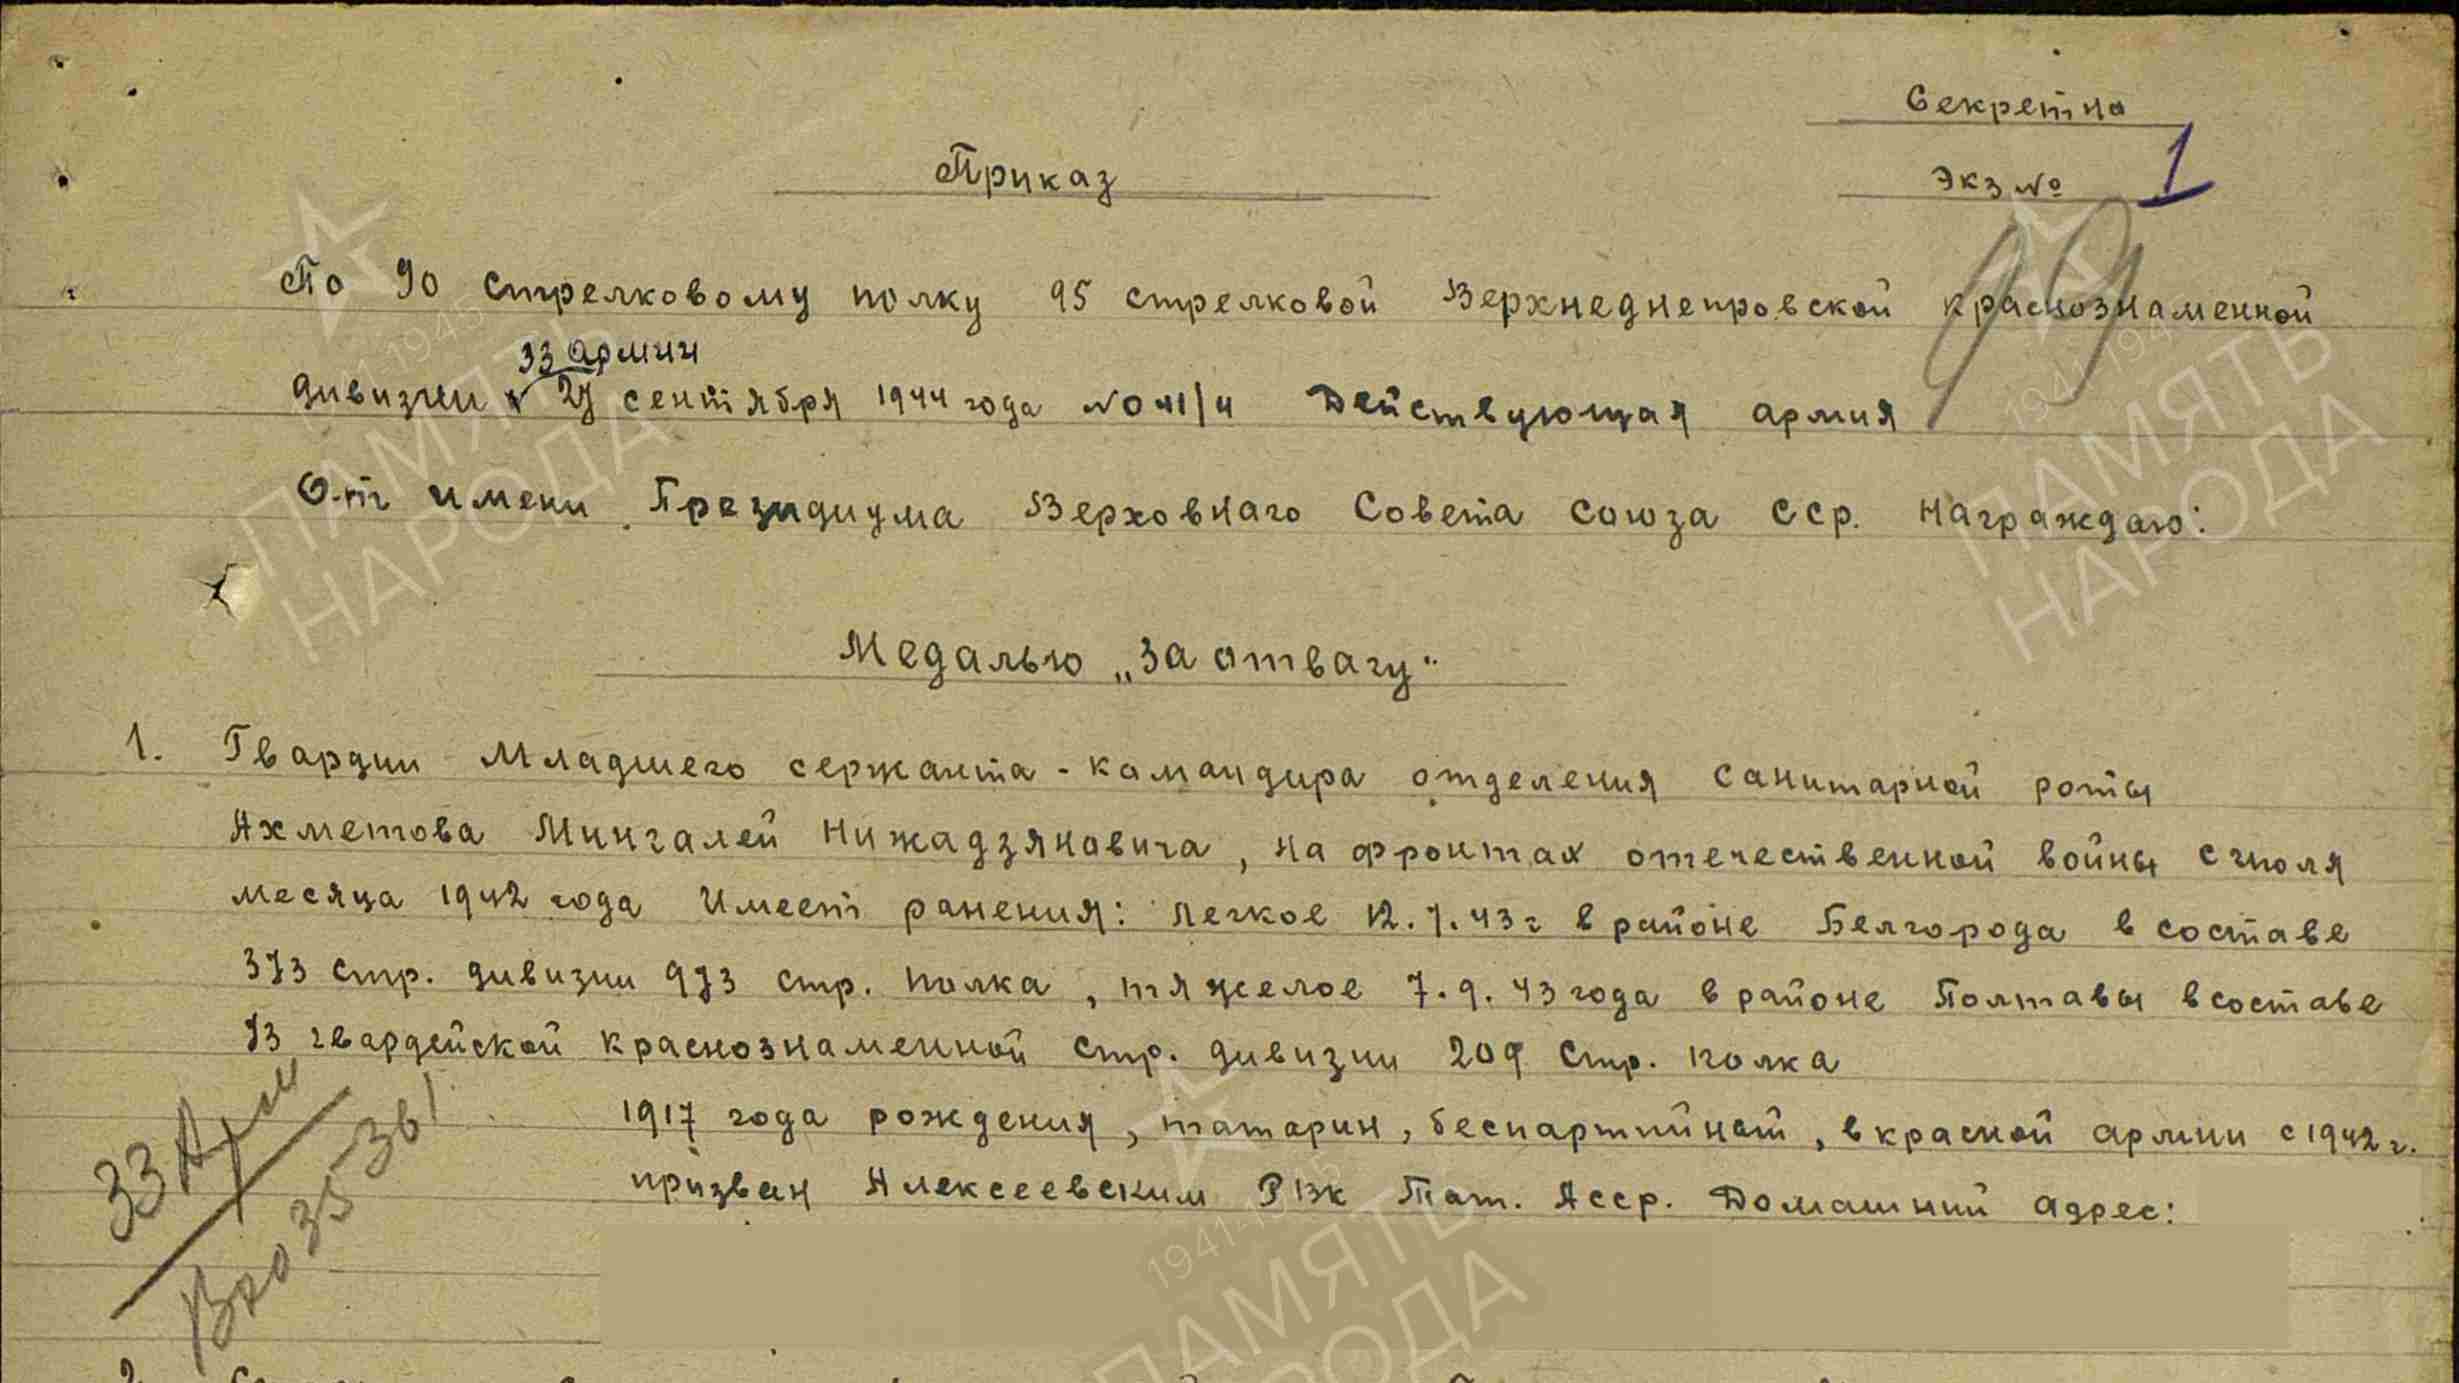 Секретно
Приказ
Экз № 1
99
По 90 стрелковому полку 95 стрелковой Верхнеднепровской краснознаменной
33 армии
дивизии 27 сентября 1944 года № 041/н Действующая армия
От имени Президиума Верховнаго Совета Союза ССР. награждаю:
Медалью „За отвагу“
1. Гвардии Младшего сержанта - командира отделения санитарной роты
Ахметова Мингалей Нижадзяновича, на фронтах отечественной войны с июля
месяца 1942 года Имеет ранения: легкое 12.7.43 г в районе Белгорода в составе
373 стр. дивизии 973 стр. полка, тяжелое 7.9.43 года в районе Полтавы в составе
73 гвардейской краснознаменной стр. дивизии 209 стр. полка
1917 года рождения, татарин, беспартийной, в красной армии с 1942 г.
призван Алексеевским РВК Тат. Асср. Домашний адрес:
33 Арм
35-361
2.
ПАМЯТЬ
НАРОДА
1941-1945
ПАМЯТЬ
НАРОДА
1941-1945
ПАМЯТЬ
НАРОДА